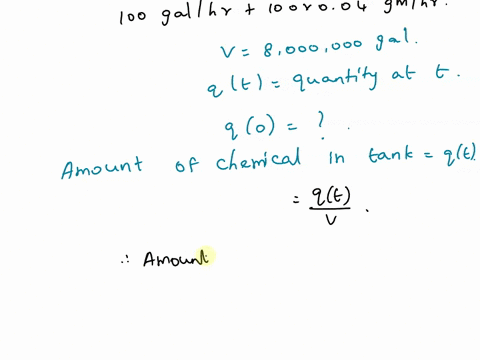 100 gal/hr + 100×0.04 gm/hr.
V = 8,000,000 gal.
q(t) = quantity at t.
q(0) = ?
Amount of chemical in tank = q(t)
= q(t)/V.
∴ Amount